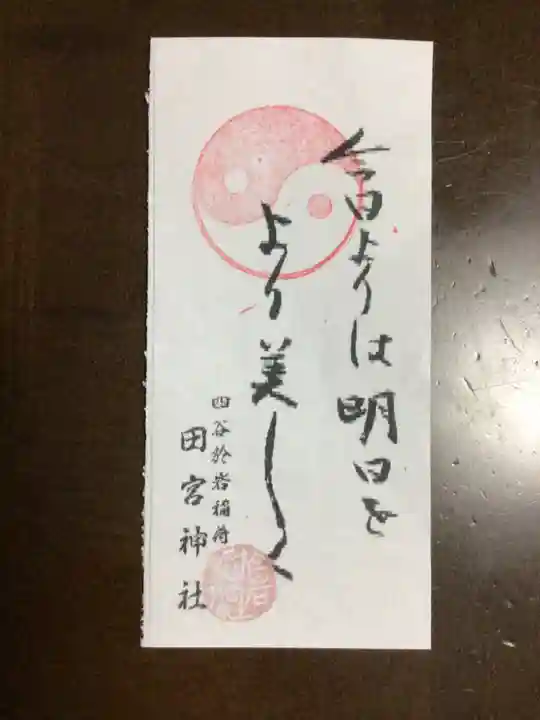 今日よりは明日を
より美しく
四谷於岩稲荷
田宮神社